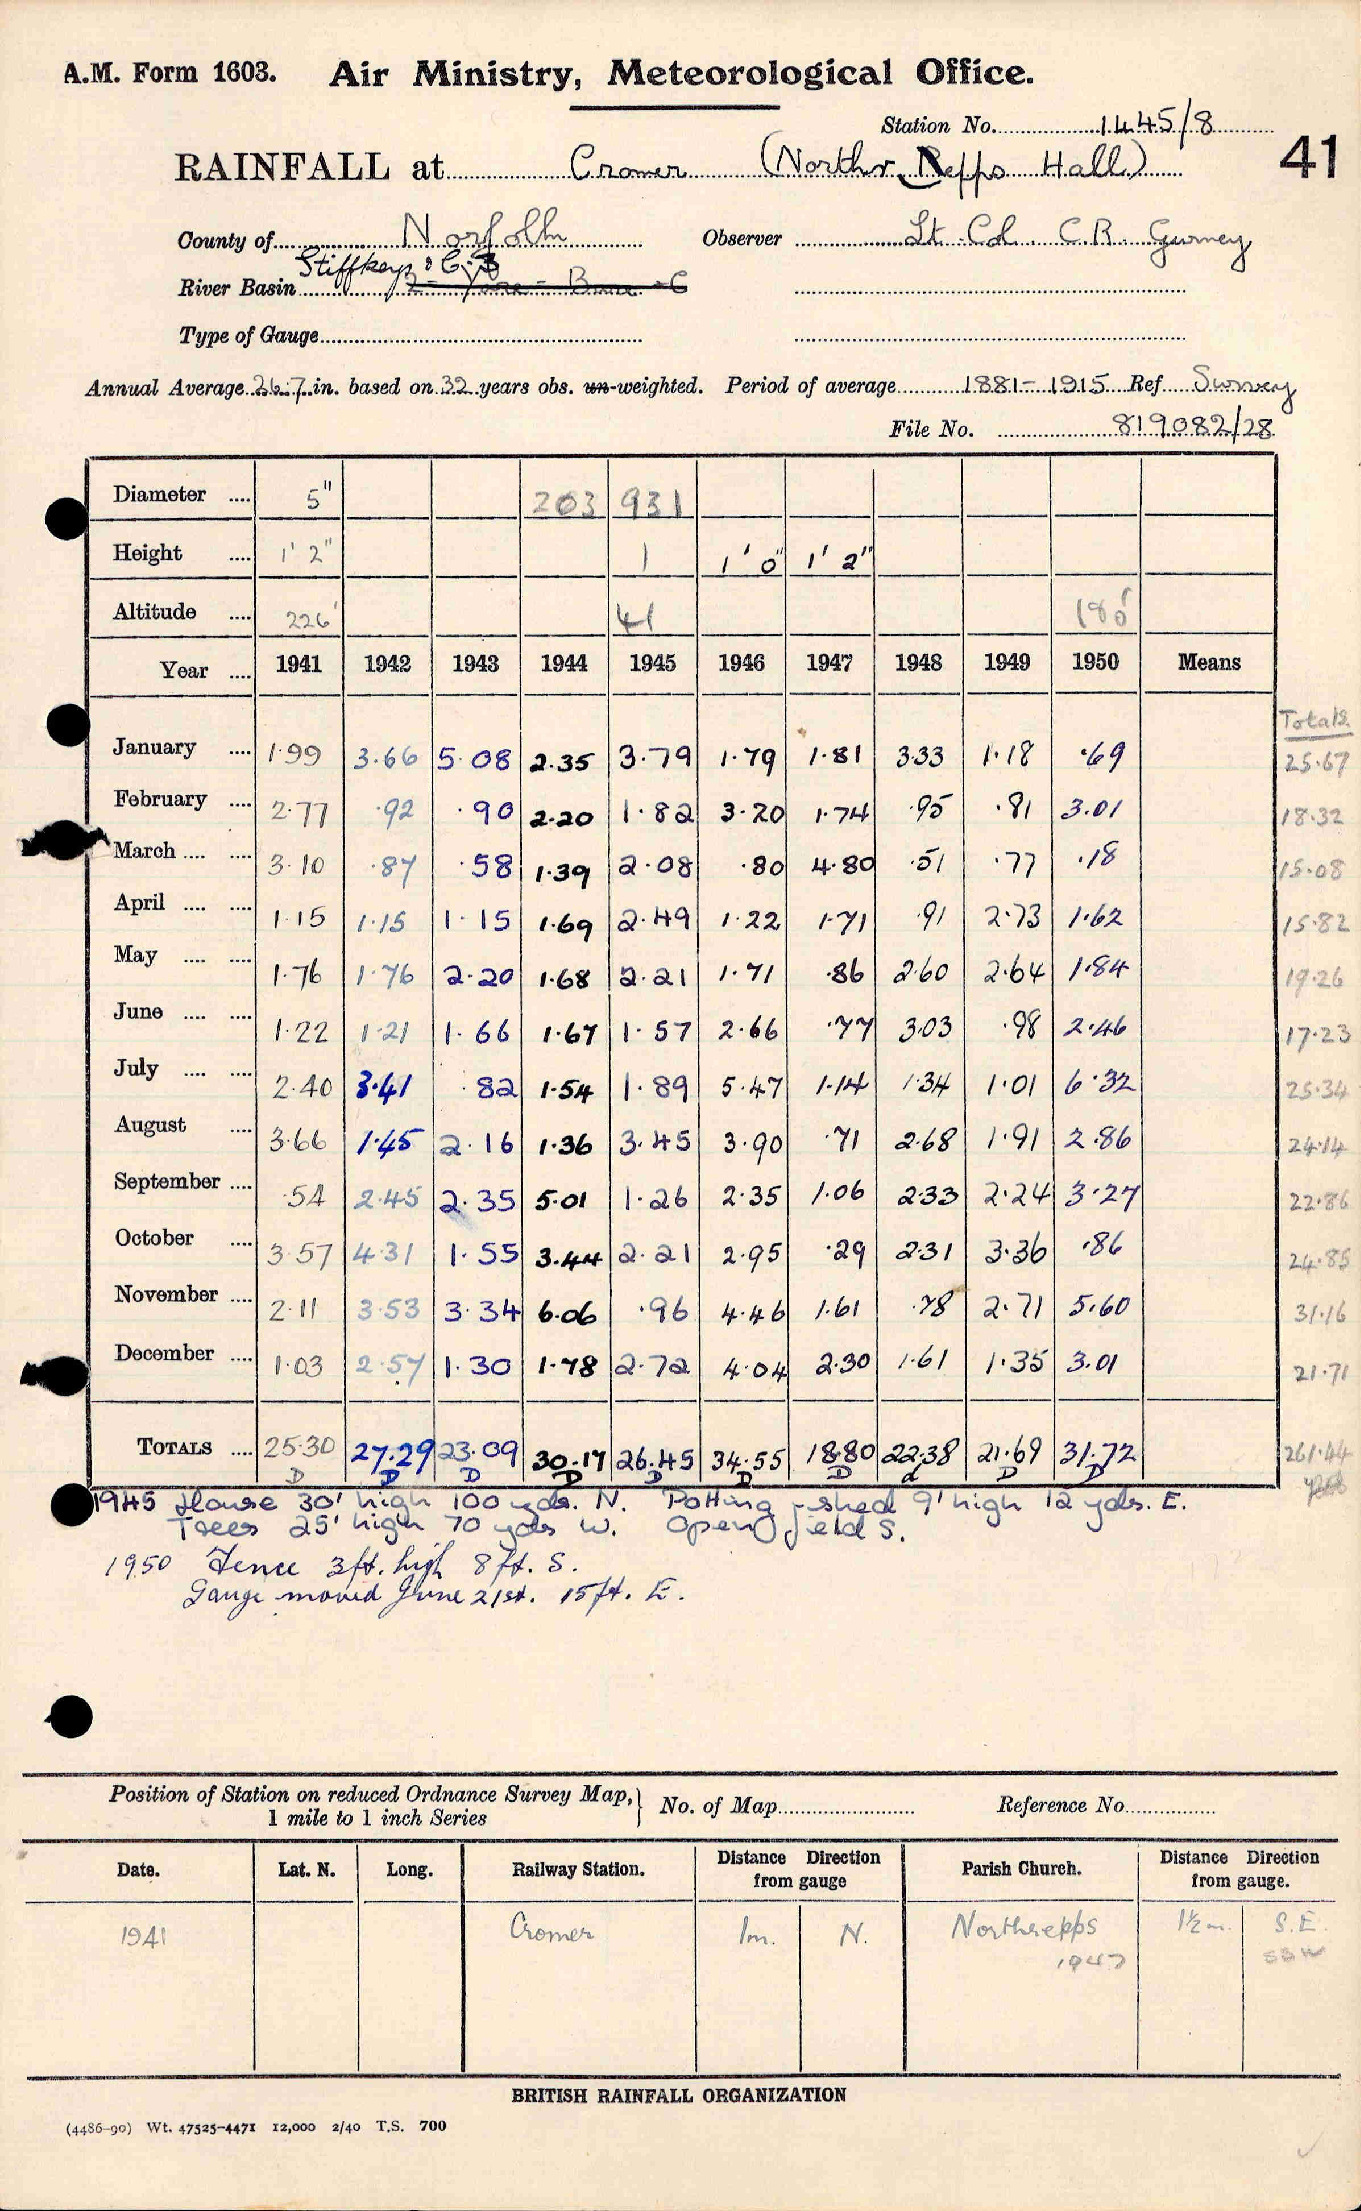 A.M. Form 1603. Air Ministry, Meteorological Office.
Station No. 1445/8
RAINFALL at Cromer (Northr Repps Hall) 41
County of Norfolk Observer Lt. Col. C.R. Gurney
Stiffkey : C.3
River Basin 2 - Yare - Bure - C
Type of Gauge
Annual Average 26.7 in. based on 32 years obs. un-weighted. Period of average 1881-1915 Ref. Survey
File No. 819082/28
Diameter .... 5" 203 931
Height .... 1' 2" 1 1' 0" 1' 2"
Altitude .... 226' 41 180'
Year .... 1941 1942 1943 1944 1945 1946 1947 1948 1949 1950 Means
Totals.
January .... 1.99 3.66 5.08 2.35 3.79 1.79 1.81 3.33 1.18 .69 25.67
February .... 2.77 .92 .90 2.20 1.82 3.20 1.74 .95 .81 3.01 18.32
March .... .... 3.10 .87 .58 1.39 2.08 .80 4.80 .51 .77 .18 15.08
April .... .... 1.15 1.15 1.15 1.69 2.49 1.22 1.71 .91 2.73 1.62 15.82
May .... .... 1.76 1.76 2.20 1.68 2.21 1.71 .86 2.60 2.64 1.84 19.26
June .... .... 1.22 1.21 1.66 1.67 1.57 2.66 .77 3.03 .98 2.46 17.23
July .... .... 2.40 3.41 .82 1.54 1.89 5.47 1.14 1.34 1.01 6.32 25.34
August .... 3.66 1.45 2.16 1.36 3.45 3.90 .71 2.68 1.91 2.86 24.14
September .... .54 2.45 2.35 5.01 1.26 2.35 1.06 2.33 2.24 3.27 22.86
October .... 3.57 4.31 1.55 3.44 2.21 2.95 .29 2.31 3.36 .86 24.85
November .... 2.11 3.53 3.34 6.06 .96 4.46 1.61 .78 2.71 5.60 31.16
December .... 1.03 2.57 1.30 1.78 2.72 4.04 2.30 1.61 1.35 3.01 21.71
TOTALS .... 25.30 27.29 23.09 30.17 26.45 34.55 18.80 22.38 21.69 31.72 261.44
D D D D D D D d D D
1945 House 30' high 100 yds. N. Potting-shed 9' high 12 yds. E.
Trees 25' high 70 yds W. Open field S.
1950 Fence 3ft. high 8 ft. S.
Gauge moved June 21st. 15 ft. E.
Position of Station on reduced Ordnance Survey Map, 1 mile to 1 inch Series } No. of Map Reference No.
Date. Lat. N. Long. Railway Station. Distance Direction from gauge Parish Church. Distance Direction from gauge.
1941 Cromer 1m. N. Northrepps 1½ m. S.E.
1947 SSW
BRITISH RAINFALL ORGANIZATION
(4486-90) Wt. 47525-4471 12,000 2/40 T.S. 700